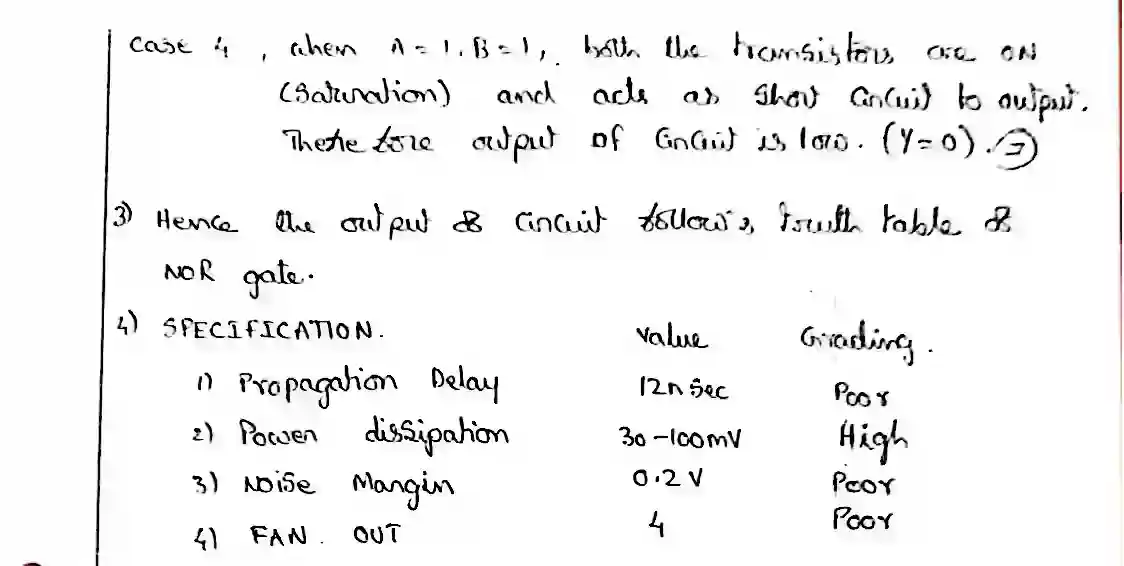 Case 4, when A = 1, B = 1, both the transistors are ON
(Saturation) and acts as Short Circuit to output.
Therefore output of Circuit is low. (Y=0).
3) Hence the output of Circuit follow's truth table of
NOR gate.
4) SPECIFICATION. Value Grading.
1) Propagation Delay 12n Sec Poor
2) Power dissipation 30-100mV High
3) Noise Margin 0.2 V Poor
4) FAN. OUT 4 Poor